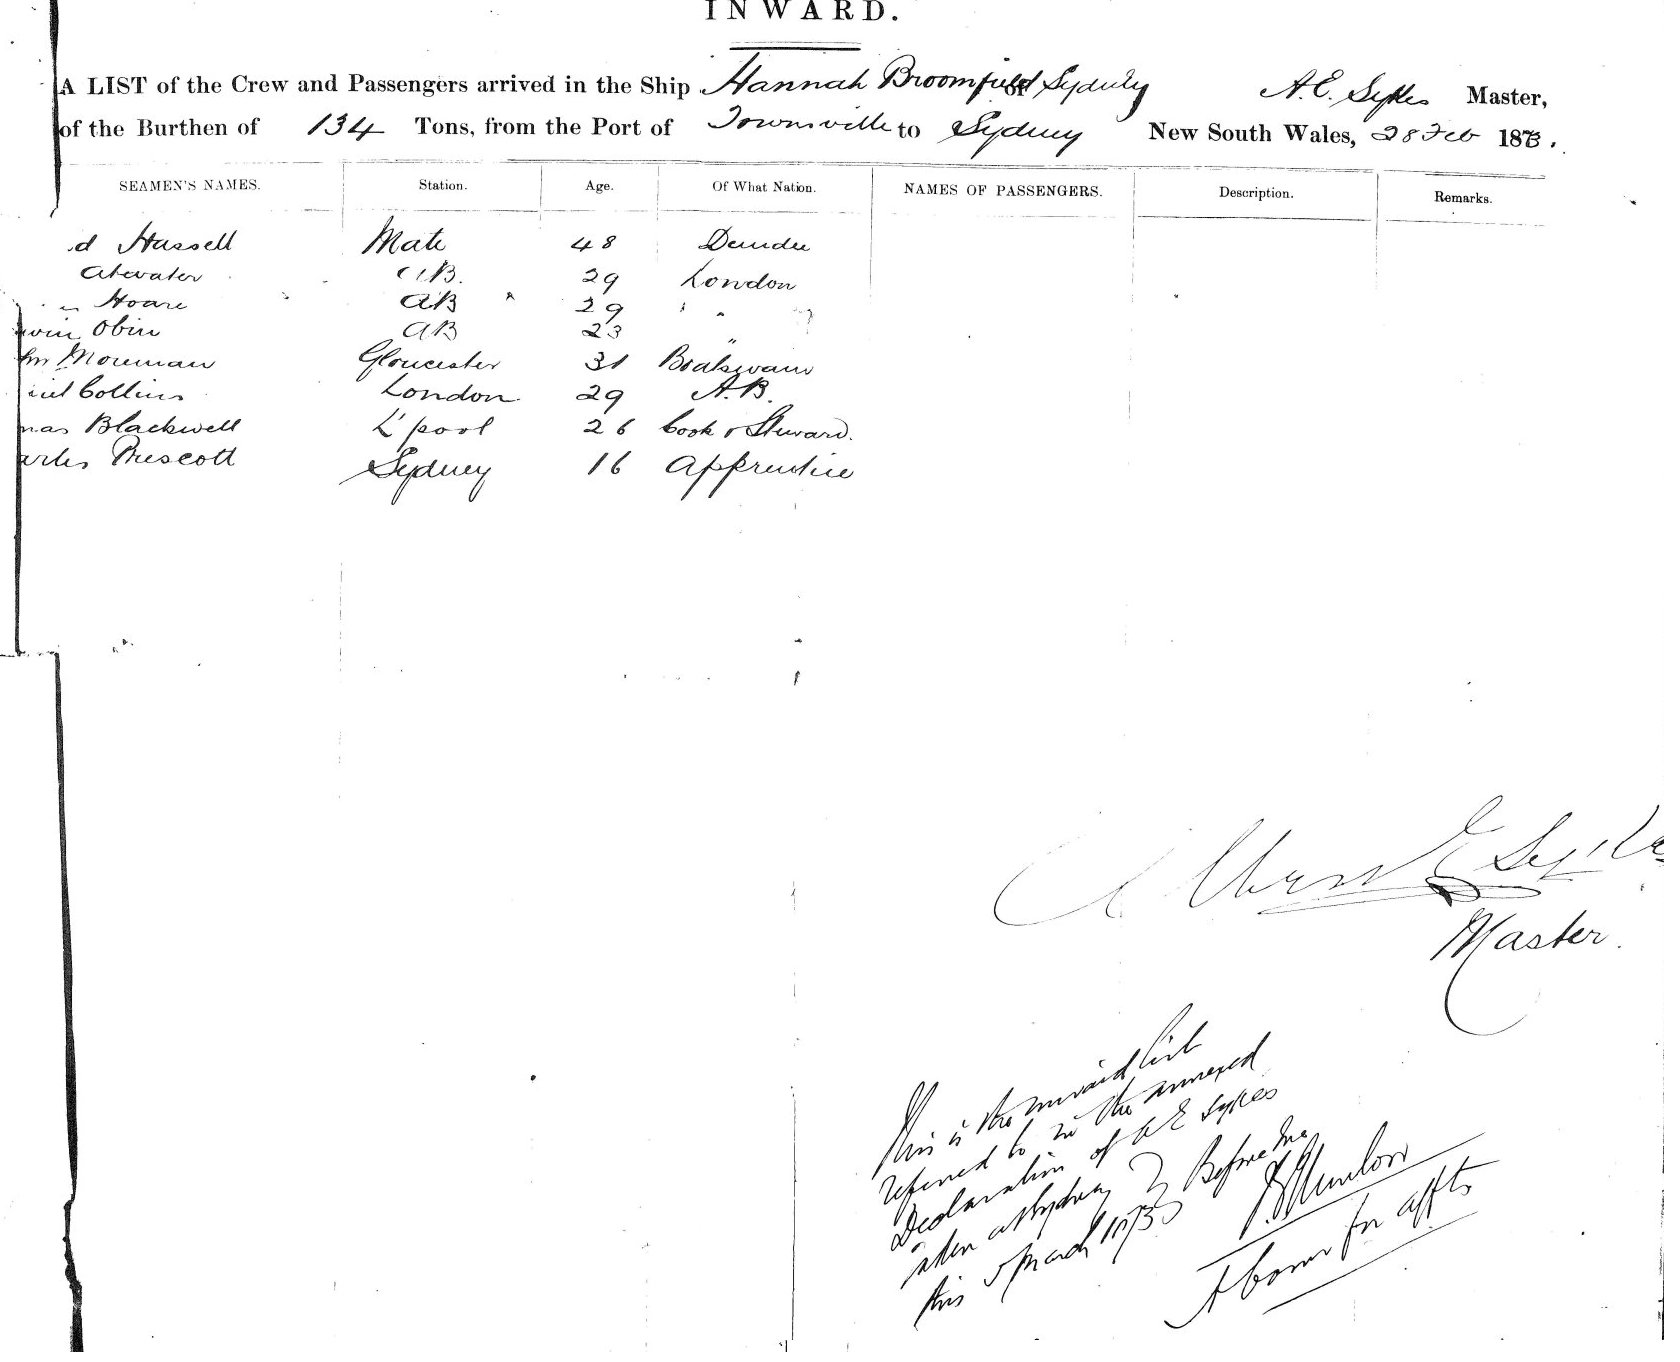 INWARD.
A LIST of the Crew and Passengers arrived in the Ship Hannah Broomfield of Sydney A. E. Sykes Master,
of the Burthen of 134 Tons, from the Port of Townsville to Sydney New South Wales, 28 Feb 1873.
SEAMEN'S NAMES. Station. Age. Of What Nation. NAMES OF PASSENGERS. Description. Remarks.
d Hassell Mate 48 Dundee
Atwater A.B. 29 London
Hoare AB 29 "
win Obin AB 23 "
hn Moreman Gloucester 31 Boatswain
iel Collins London 29 A.B.
mas Blackwell L'pool 26 Cook & Steward.
arles Prescott Sydney 16 Apprentice
Albert E Sykes
Master.
This is the inward list
referred to in the annexed
Declaration of A E Sykes
taken at Sydney Before me
this 5 March 1873
A Comr for affts